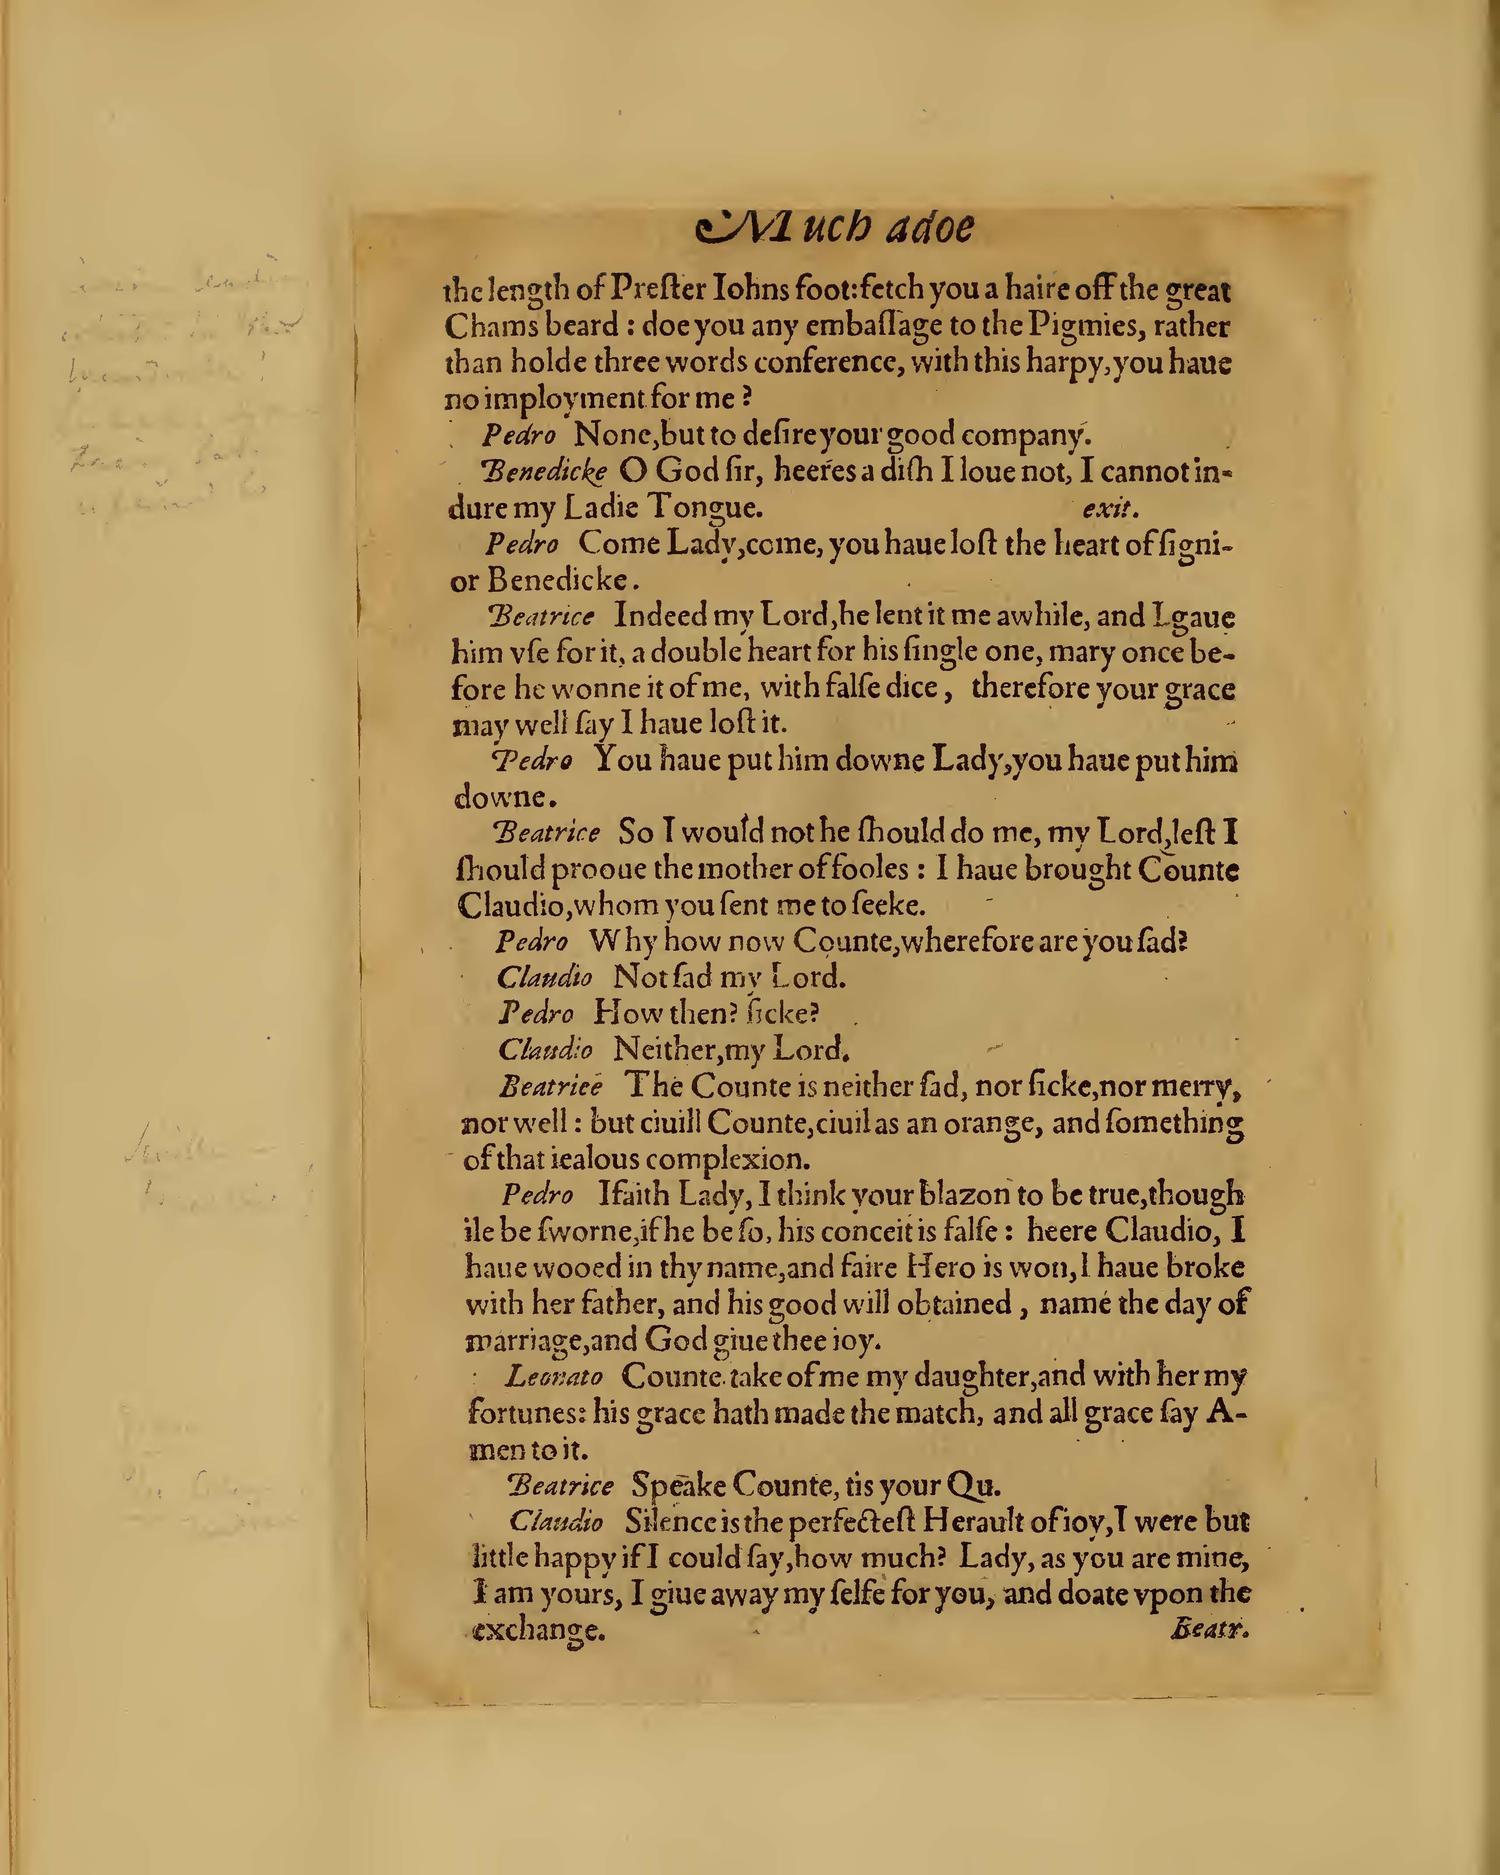 Much adoe
the length of Preſter Iohns foot: fetch you a haire off the great
Chams beard : doe you any embaſſage to the Pigmies, rather
than holde three words conference, with this harpy, you haue
no imployment for me ?
Pedro None, but to deſire your good company.
Benedicke O God ſir, heeres a diſh I loue not, I cannot in-
dure my Ladie Tongue. exit.
Pedro Come Lady, come, you haue loſt the heart of ſigni-
or Benedicke.
Beatrice Indeed my Lord, he lent it me awhile, and I gaue
him vſe for it, a double heart for his ſingle one, mary once be-
fore he wonne it of me, with falſe dice, therefore your grace
may well ſay I haue loſt it.
Pedro You haue put him downe Lady, you haue put him
downe.
Beatrice So I would not he ſhould do me, my Lord, leſt I
ſhould prooue the mother of fooles : I haue brought Counte
Claudio, whom you ſent me to ſeeke.
Pedro Why how now Counte, wherefore are you ſad?
Claudio Not ſad my Lord.
Pedro How then? ſicke?
Claudio Neither, my Lord.
Beatrice The Counte is neither ſad, nor ſicke, nor merry,
nor well : but ciuill Counte, ciuil as an orange, and ſomething
of that iealous complexion.
Pedro Ifaith Lady, I think your blazon to be true, though
ile be ſworne, if he be ſo, his conceit is falſe : heere Claudio, I
haue wooed in thy name, and faire Hero is won, I haue broke
with her father, and his good will obtained, name the day of
marriage, and God giue thee ioy.
Leonato Counte take of me my daughter, and with her my
fortunes: his grace hath made the match, and all grace ſay A-
men to it.
Beatrice Speake Counte, tis your Qu.
Claudio Silence is the perfecteſt Herault of ioy, I were but
little happy if I could ſay, how much? Lady, as you are mine,
I am yours, I giue away my ſelfe for you, and doate vpon the
exchange. Beatr.